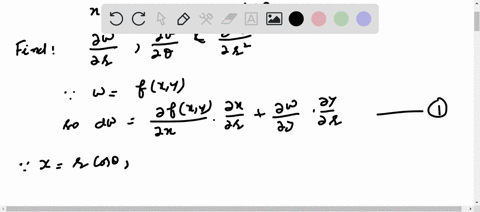 x
Find: ∂w/∂r , ∂v/∂θ & /∂r²
∵ w = f(x,y)
so dw = ∂f(x,y)/∂x · ∂x/∂r + ∂w/∂y · ∂y/∂r —— ①
∵ x = r cosθ,